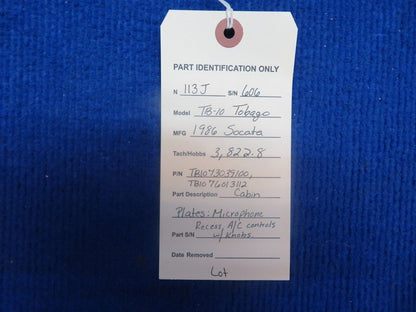 PART IDENTIFICATION ONLY
N 113J S/N 606
Model TB-10 Tobago
MFG 1986 Socata
Tach/Hobbs 3,822.8
P/N TB1073035100,
TB1076013112
Part Description Cabin
Plates: Microphone
Recess, A/C controls
Part S/N w/ Knobs.
Date Removed
Lot